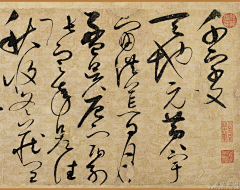 千字文
天地元黃宇
宙洪荒日月
盈昃辰宿列
張寒來暑往
秋收冬藏閏